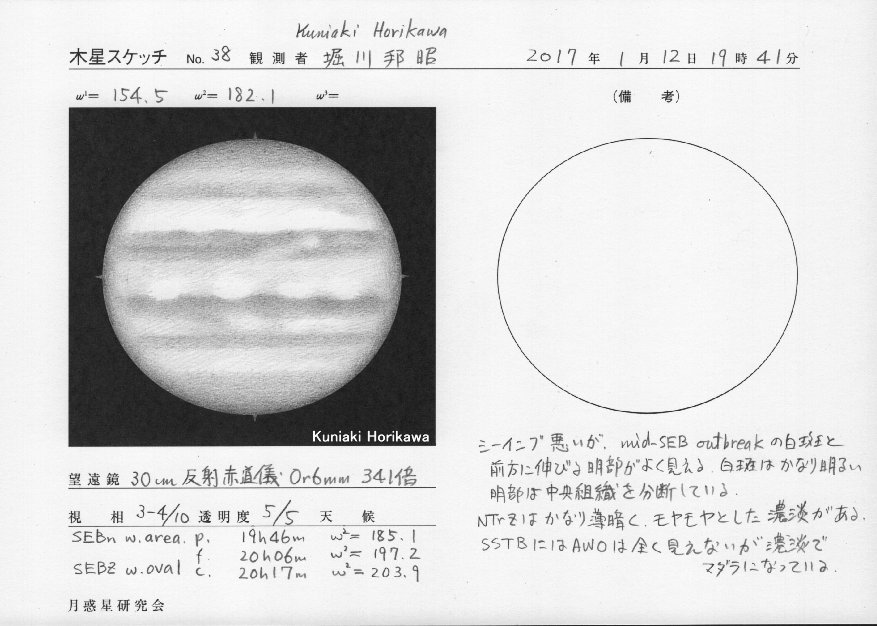 Kuniaki Horikawa
木星スケッチ No. 38 観測者 堀川邦昭 2017年 1月 12日 19時 41分
ω¹= 154.5 ω²= 182.1 ω³=
(備 考)
Kuniaki Horikawa
シーイング悪いが、mid-SEB outbreakの白斑と
前方に伸びる明部がよく見える。白斑はかなり明るい
明部は中央組織を分断している。
NTrZはかなり薄暗く、モヤモヤとした濃淡がある。
SSTBにはAWOは全く見えないが濃淡で
マダラになっている。
望遠鏡 30cm 反射赤道儀 Or6mm 341倍
視 相 3-4/10 透明度 5/5 天 候
SEBn w.area. p. 19h46m ω²= 185.1
f. 20h06m ω²= 197.2
SEBZ w.oval c. 20h17m ω²= 203.9
月惑星研究会